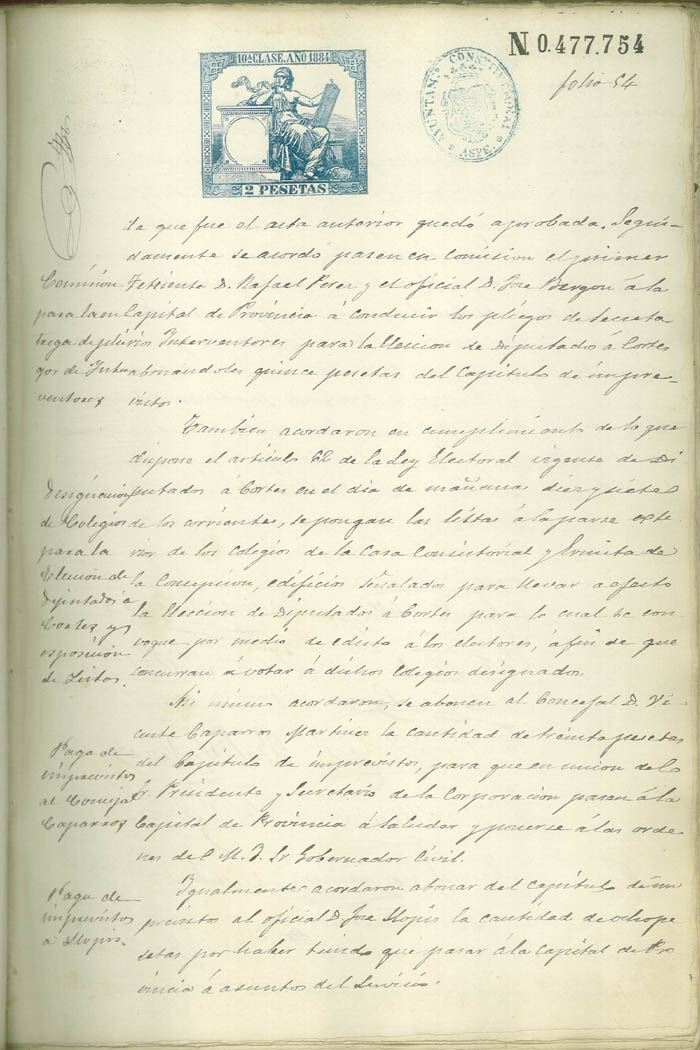 10ª CLASE. AÑO 1884
2 PESETAS
AYUNTAMTO CONSTITUCIONAL
ASPE
N. 0.477.754
folio 54
da que fue el acta anterior quedó aprobada. Segui-
damente se acordó pasen en Comision el primer
Comision
para la en
trega de plie
gos de Inter
ventores
Teniente D. Rafael Perez y el oficial D. Jose á la
Capital de Provincia á conducir los pliegos de secreta
rios Interventores para la Eleccion de Diputados á Cortes
abonandoles quince pesetas del Capitulo de impre-
vistos.
Tambien acordaron en cumplimiento de lo que
dispone el articulo 62 de la Ley Electoral vigente de Di
Designacion
de Colegios
para la
Eleccion de
Diputados á
Cortes y
esposicion
de Listas.
putados á Cortes en el dia de mañana diez y siete
de los corrientes, se pongan las listas á la parte este
rior de los Colegios de la Casa Consistorial y Ermita de
la Concepcion, edificios señalados para llevar a efecto
la Eleccion de Diputados á Cortes para lo cual se con
voque por medio de edicto á los electores, á fin de que
concurran á votar á dichos Colegios designados.
Asi mismo acordaron, se abonen al Concejal D. Vi
Pago de
imprevistos
al Concejal
Caparros
cente Caparros Martinez la cantidad de treinta pesetas
del Capitulo de imprevistos, para que en union de lo
Sr. Presidente y Secretario de la Corporacion pasen á la
Capital de Provincia á saludar y ponerse á las orde
nes del M. I. Sr Gobernador Civil.
Pago de
imprevistos
a Llopis.
Igualmente acordaron abonar del capitulo de im
previstos al oficial D. Jose Llopis la cantidad de ocho pe
setas por haber tenido que pasar á la Capital de Pro
vincia á asuntos del Servicio.